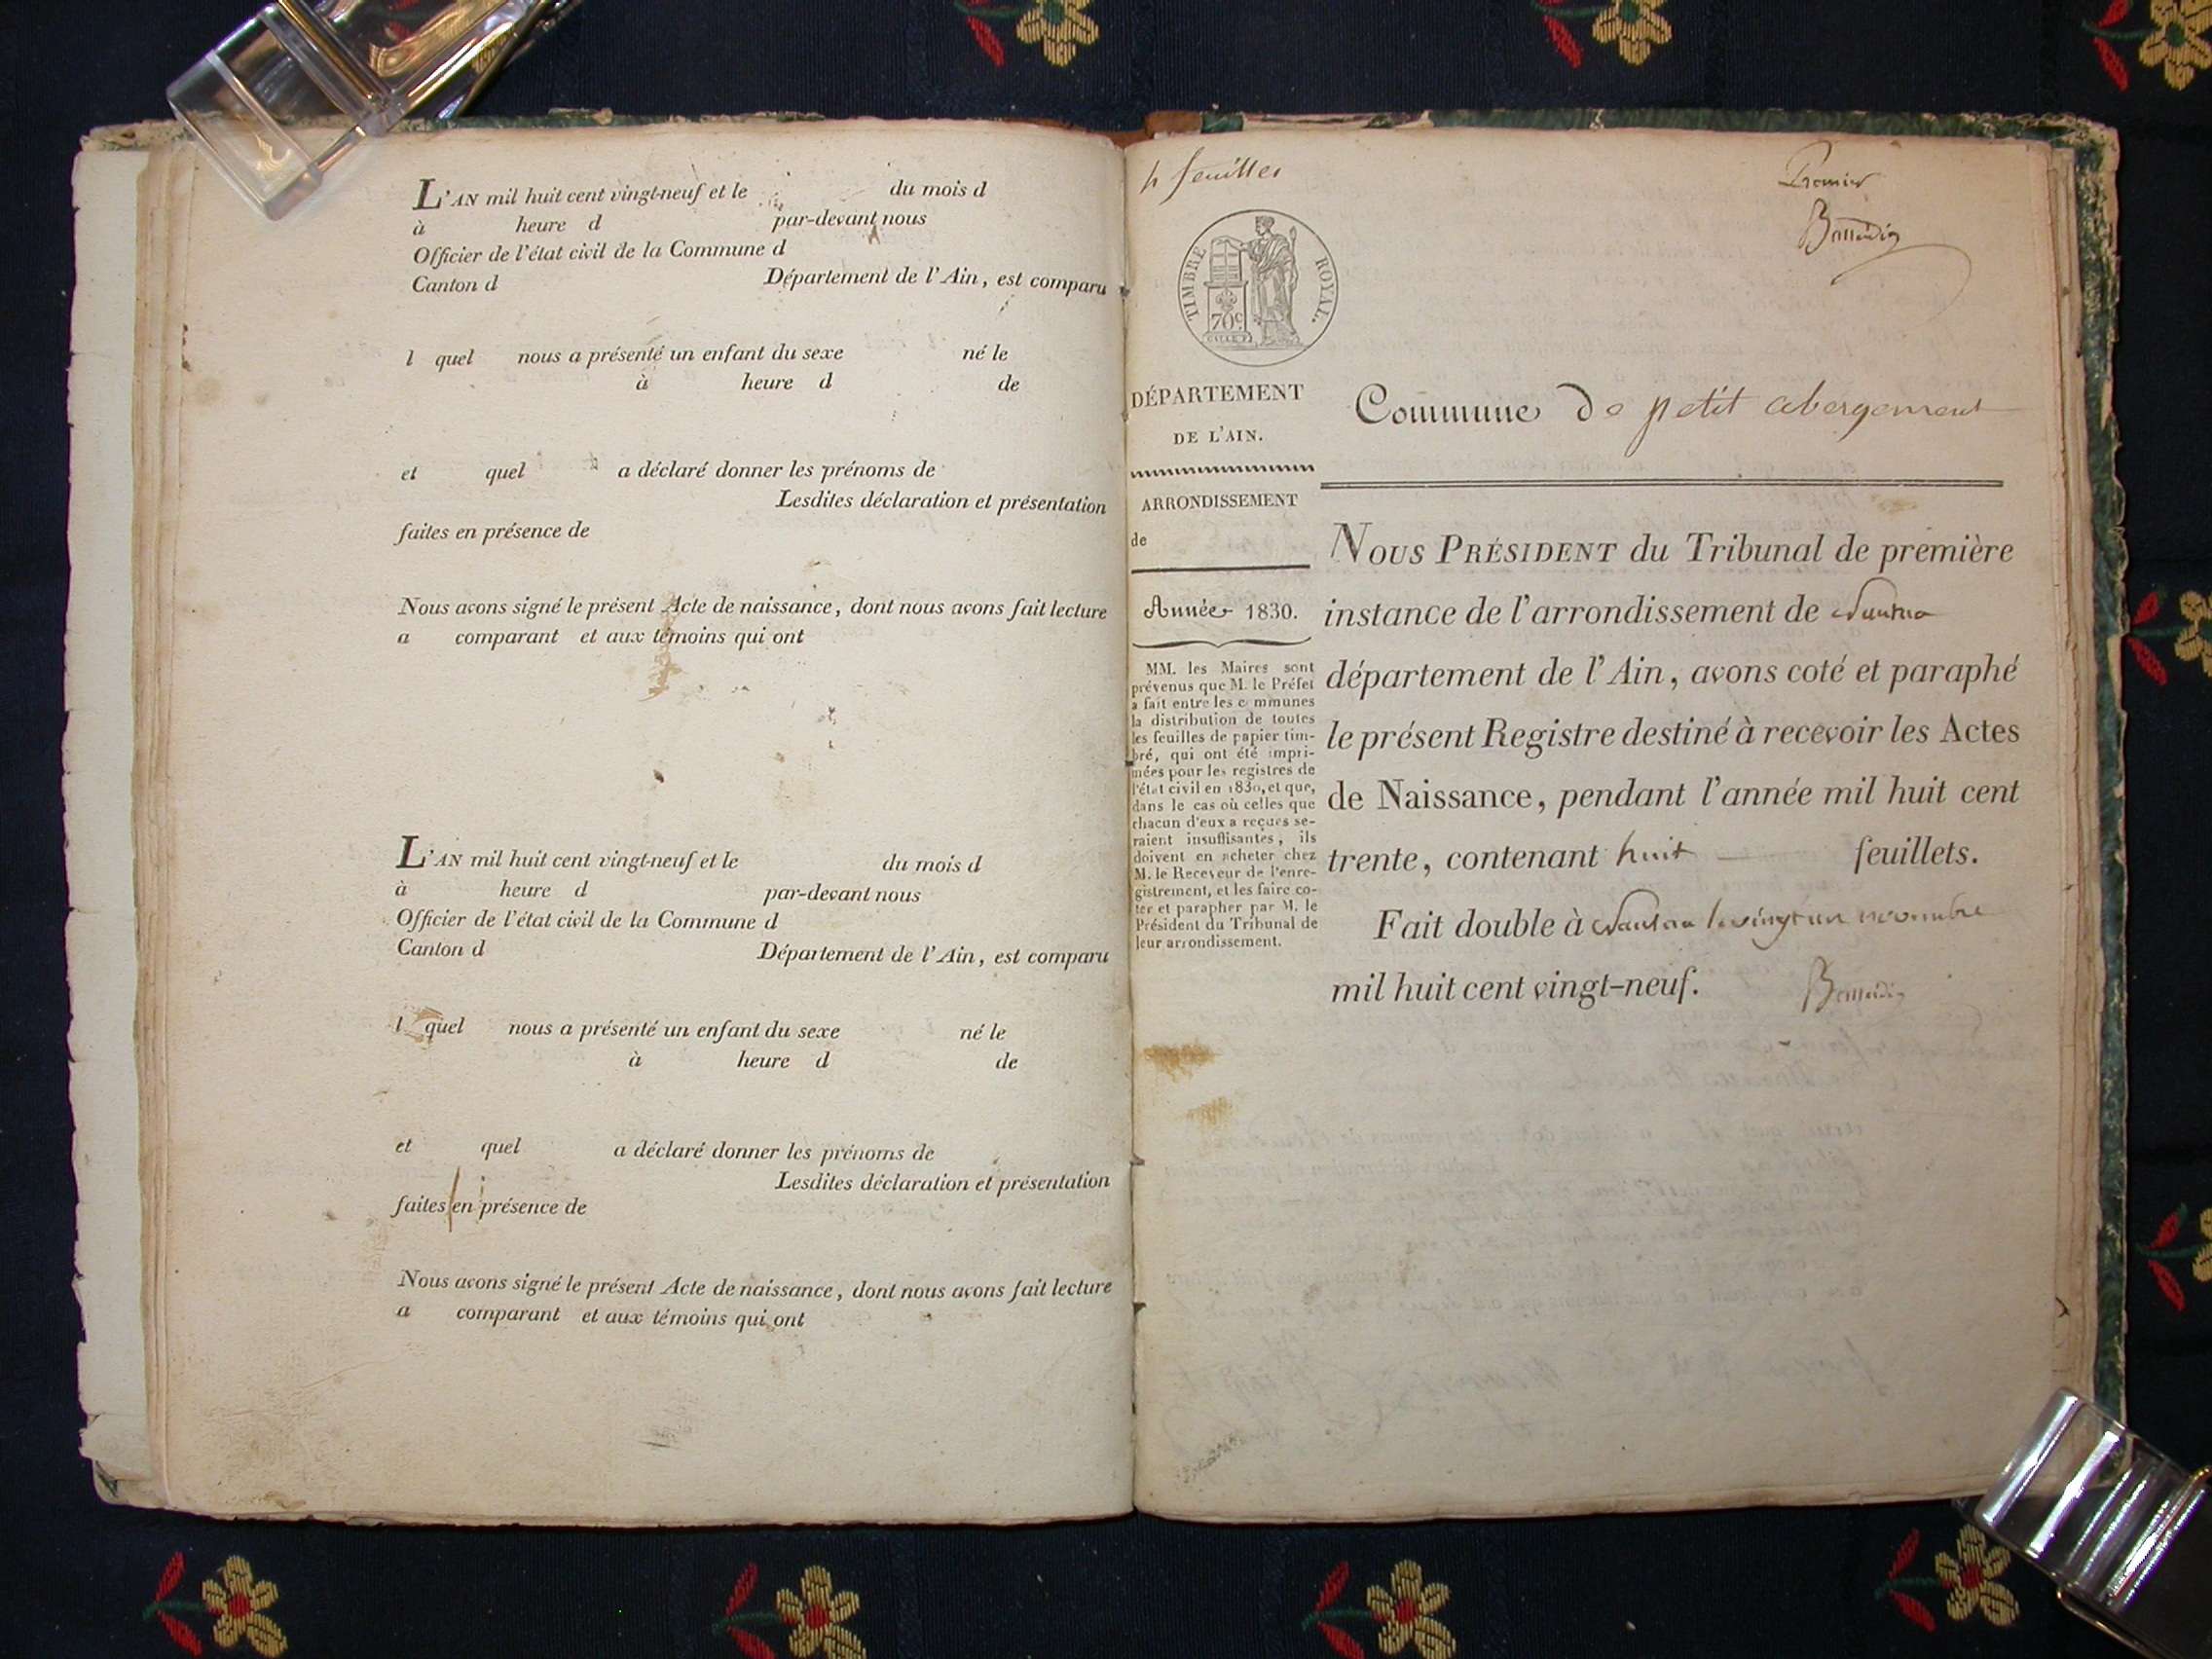 L'AN mil huit cent vingt-neuf et le du mois d
à heure d par-devant nous
Officier de l'état civil de la Commune d
Canton d Département de l'Ain, est comparu
l quel nous a présenté un enfant du sexe né le
à heure d de
et quel a déclaré donner les prénoms de
Lesdites déclaration et présentation
faites en présence de
Nous avons signé le présent Acte de naissance, dont nous avons fait lecture
a comparant et aux témoins qui ont
L'AN mil huit cent vingt-neuf et le du mois d
à heure d par-devant nous
Officier de l'état civil de la Commune d
Canton d Département de l'Ain, est comparu
l quel nous a présenté un enfant du sexe né le
à heure d de
et quel a déclaré donner les prénoms de
Lesdites déclaration et présentation
faites en présence de
Nous avons signé le présent Acte de naissance, dont nous avons fait lecture
a comparant et aux témoins qui ont
4 feuilles
Premier
TIMBRE ROYAL.
70c
DÉPARTEMENT
DE L'AIN.
ARRONDISSEMENT
de
Année 1830.
MM. les Maires sont
prévenus que M. le Préfet
a fait entre les c mmunes
la distribution de toutes
les feuilles de papier tim-
bré, qui ont été impri-
mées pour les registres de
l'état civil en 1830, et que,
dans le cas où celles que
chacun d'eux a reçues se-
raient insuffisantes, ils
doivent en acheter chez
M. le Receveur de l'enre-
gistrement, et les faire co-
ter et parapher par M. le
Président du Tribunal de
leur arrondissement.
Commune de petit abergement
NOUS PRÉSIDENT du Tribunal de première
instance de l'arrondissement de Nantua
département de l'Ain, avons coté et paraphé
le présent Registre destiné à recevoir les Actes
de Naissance, pendant l'année mil huit cent
trente, contenant huit feuillets.
Fait double à Nantua le vingt un novembre
mil huit cent vingt-neuf.